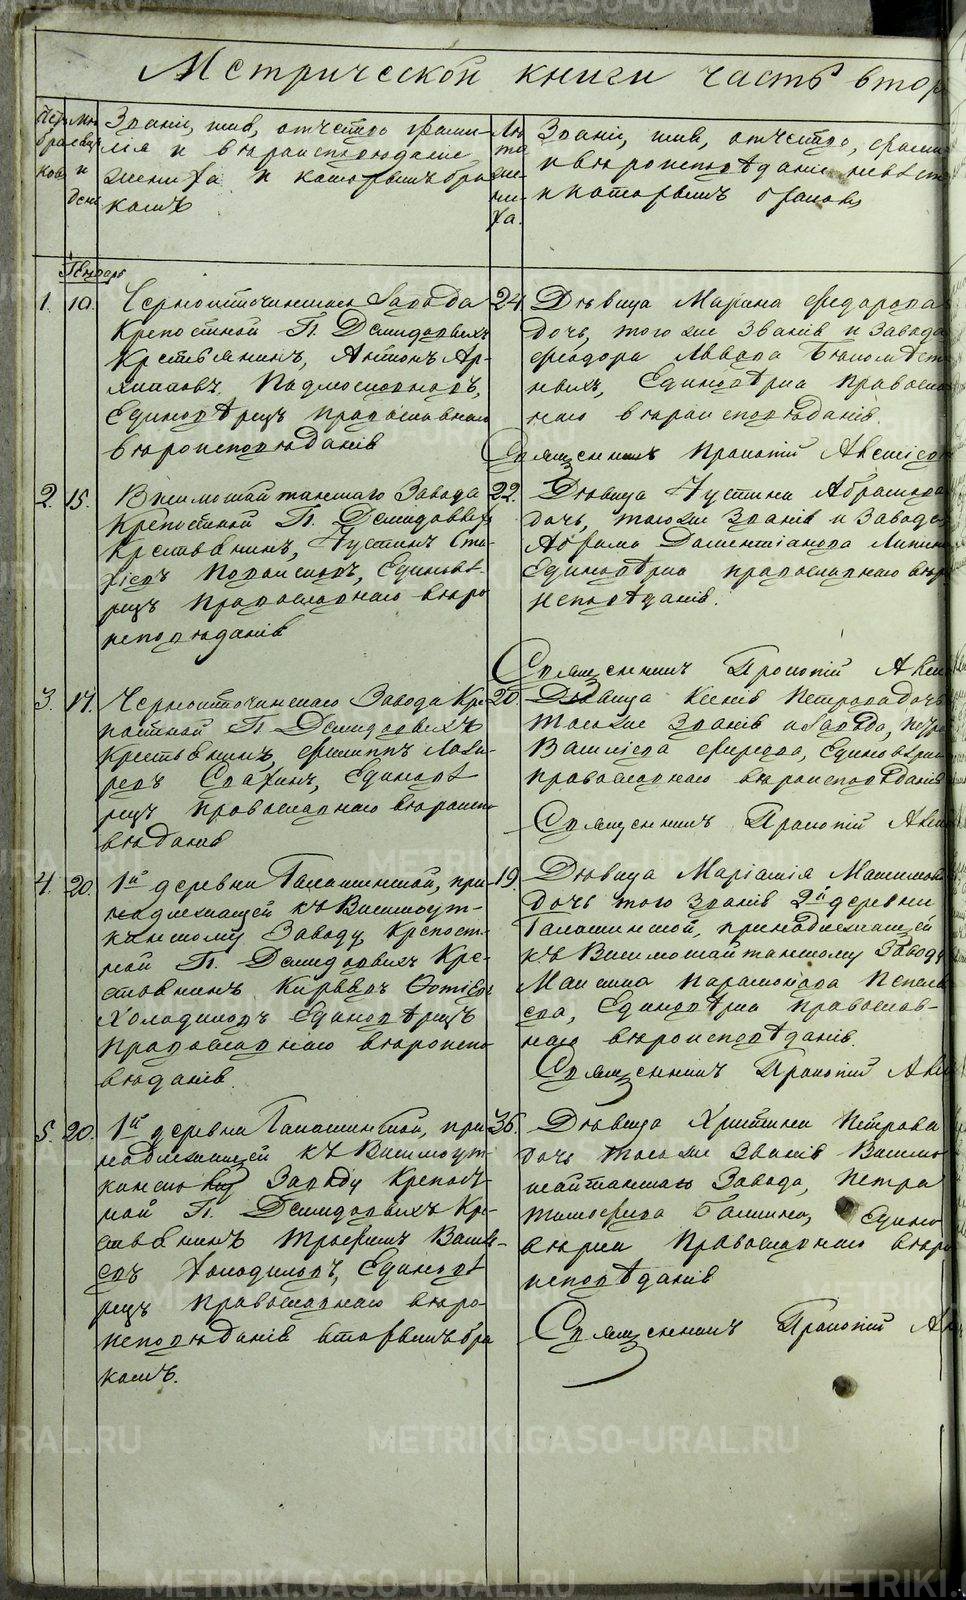 Метрической книги часть втор
Счетъ браковъ
Месяцъ и день
Званіе, имя, отчество, фами-
лія и вѣроисповѣданіе
жениха и которымъ бра
комъ
Лѣта жениха.
Званіе, имя, отчество, фамил
и вѣроисповѣданіе невѣст
и которымъ бракомъ
Генварь
1. 10. Черноисточинскаго Завода
крепостной Гг. Демидовыхъ
Крестьянинъ, Антонъ Ар-
хиповъ,
Единовѣрецъ православнаго
вѣроисповѣданія
24. Дѣвица Марина Федорова
дочь, того же званія и завода
Феодора
Единовѣрка правосла
наго вѣроисповѣданія.
Священникъ Прокопій
2. 15. Висимошайтанскаго Завода
крепостной Гг. Демидовыхъ
Крестьянинъ, Іустинъ
Единовѣ-
рецъ православнаго вѣро
исповѣданія
22. Дѣвица Іустина Абрамова
дочь, того же званія и завода
Абрама Даментіанова
Единовѣрка православнаго вѣро
исповѣданія.
Священникъ Прокопій
3. 17. Черноисточинскаго Завода Кре
постной Гг. Демидовыхъ
Крестьянинъ, Филиппъ
Единовѣ
рецъ православнаго вѣроиспо
вѣданія
20. Дѣвица Ксенія Петрова дочь
того же званія и завода, Петра
Васильева Единовѣрка
православнаго вѣроисповѣданія
Священникъ Прокопій
4. 20. 1й деревни Галашинской, при
надлежащей къ Висимоут-
кинскому Заводу, Крепост-
ной Гг. Демидовыхъ Кре-
стьянинъ
Холодиловъ Единовѣрецъ
Православнаго вѣроиспо
вѣданія.
19. Дѣвица Маріамія Максимова
дочь того званія 2й деревни
Галашинской, принадлежащей
къ Висимошайтанскому Заводу
Максима Парамонова
Единовѣрка православ-
наго вѣроисповѣданія.
Священникъ Прокопій
5. 20. 1й деревни Галашинской, при
надлежащей къ Висимоут-
кинскому Заводу Крепост-
ной Гг. Демидовыхъ Кре-
стьянинъ Трофимъ Василь-
евъ Холодиловъ, Единовѣ
рецъ православнаго вѣро-
исповѣданія вторымъ бра
комъ.
36. Дѣвица Христина Петрова
дочь того же званія Висимо
шайтанскаго Завода, Петра
Тимофеева Едино
вѣрка православнаго вѣро
исповѣданія
Священникъ Прокопій
METRIKI.GASO-URAL.RU